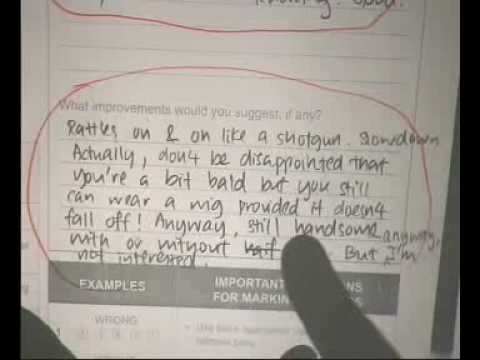 What improvements would you suggest, if any?
Rattles on & on like a shotgun. Slowdown
Actually, don4 be disappointed that
you're a bit bald but you still
can wear a wig provided it doesn4
fall off! Anyway, still handsome anyway,
with or without But I'm
not interested.
EXAMPLES
IMPORTANT
FOR MARKING
WRONG